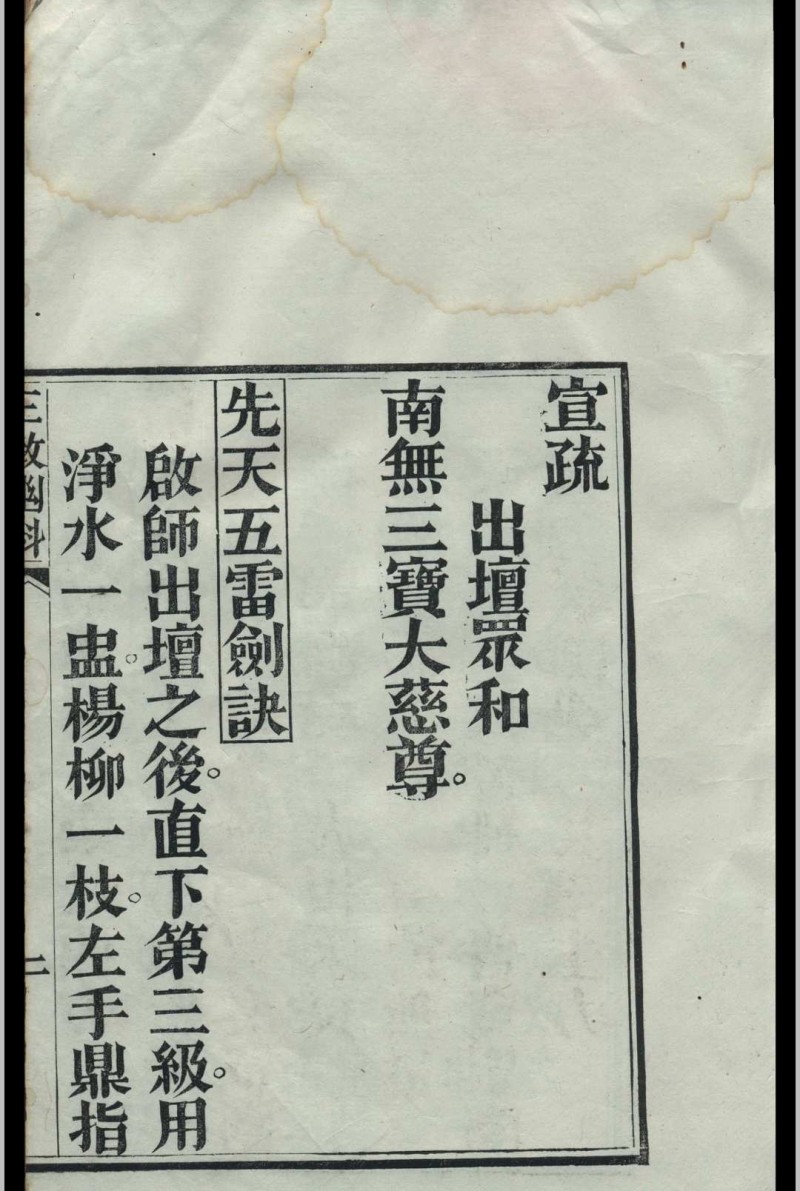 宣疏
出壇眾和
南無三寶大慈尊。
先天五雷劍訣
啟師出壇之後。直下第三級。用
淨水一盅。楊柳一枝。左手鼎指
三教幽科
二